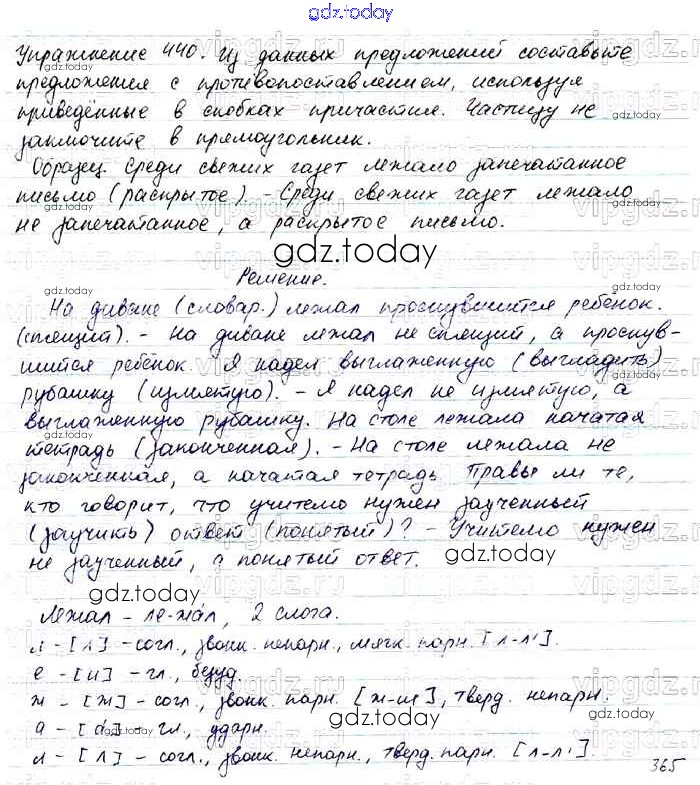 gdz.today
Упражнение 440. Из данных предложений составьте
предложения с противопоставлением, используя
приведённые в скобках причастия. Частицу не
заключите в прямоугольник.
Образец. Среди свежих газет лежало запечатанное
письмо (раскрытое). - Среди свежих газет лежало
не запечатанное, а раскрытое письмо.
gdz.today
Решение.
На диване (словар.) лежал проснувшийся ребёнок.
(спящий). - На диване лежал не спящий, а проснув-
шийся ребёнок. Я надел выглаженную (выгладить)
рубашку (измятую). - Я надел не измятую, а
выглаженную рубашку. На столе лежала начатая
тетрадь (законченная). - На столе лежала не
законченная, а начатая тетрадь. Правы ли те,
кто говорит, что учителю нужен заученный
(заучить) ответ (понятый)? - Учителю нужен
не заученный, а понятый ответ.
gdz.today
Лежал - ле-жа́л, 2 слога.
л - [л'] - согл., звонк. непарн., мягк. парн. [л-л'].
е - [и] - гл., безуд.
ж - [ж] - согл., звонк. парн. [ж-ш], тверд. непарн.
gdz.today
а - [а́] - гл., ударн.
л - [л] - согл., звонк. непарн., тверд. парн. [л-л'].
365